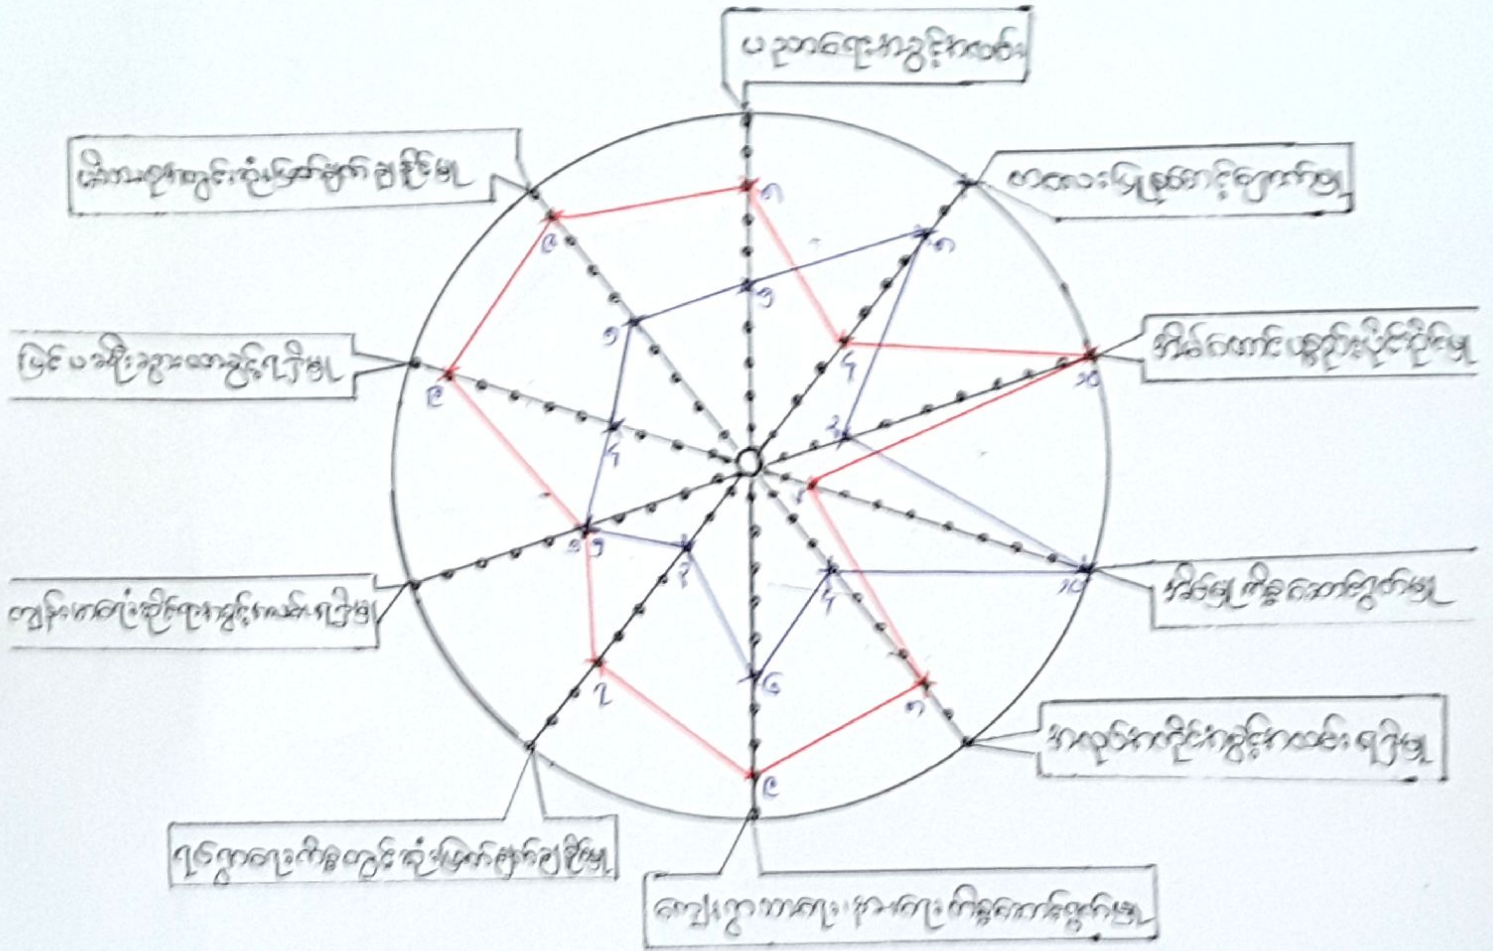 ပညာရေးအခွင့်အလမ်း
ကလေးပြုစုစောင့်ရှောက်မှု
အိမ်ထောင်ပစ္စည်းပိုင်ဆိုင်မှု
အိမ်မှုကိစ္စဆောင်ရွက်မှု
အလုပ်အကိုင်အခွင့်အလမ်းရရှိမှု
ကျေးရွာသာရေး၊ နာရေးကိစ္စဆောင်ရွက်မှု
ရပ်ရွာရေးကိစ္စတွင်ဆုံးဖြတ်ချက်ချနိုင်မှု
ကျန်းမာရေးဆိုင်ရာအခွင့်အလမ်းရရှိမှု
ပြင်ပခရီးသွားလာခွင့်ရရှိမှု
မိသားစုအတွင်းဆုံးဖြတ်ချက်ချနိုင်မှု
၈
၅
၈
၄
၁၀
၃
၂
၁၀
၄
၈
၆
၉
၃
၇
၅
၅
၄
၉
၅
၉